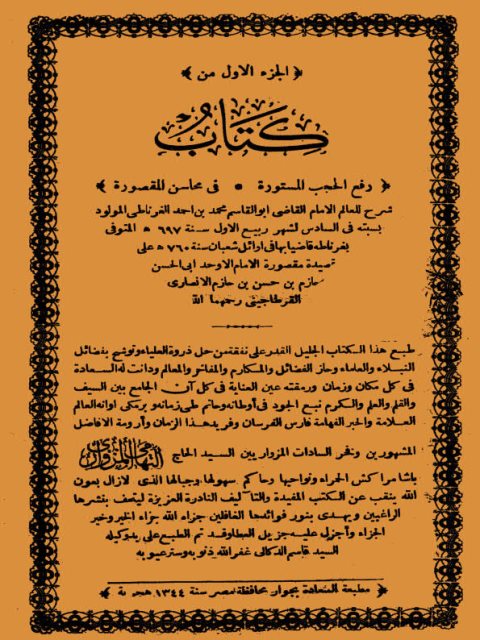 ﴿ الجزء الاول من ﴾
كِتَابُ
﴿ رفع الحجب المستورة * فى محاسن المقصورة ﴾
شرح للعالم الامام القاضى ابو القاسم محمد بن احمد الغرناطى المولود
بسبته فى السادس لشهر ربيع الاول سنة ٦٩٧ ه المتوفى
بغرناطه قاضيا بها فى اوائل شعبان سنة ٧٦٠ ه على
قصيدة مقصورة الامام الاوحد ابى الحسن
حازم بن حسن بن حازم الانصارى
القرطاجينى رحمهما الله
طبع هذا الكتاب الجليل القدر على نفقة من حل ذروة العلياء وتوشح بفضائل
النبلاء والعلماء وحاز الفضائل والمكارم والمفاخر والمعالم ودانت له السعادة
فى كل مكان وزمان ورمقته عين العناية فى كل آن الجامع بين السيف
والقلم والعلم والكرم نبع الجود فى أوطانه وحاتم طى زمانه وبرمكى اوانه العالم
العلامة والحبر الفهامة فارس الفرسان وفريد هذا الزمان وأرومة الافاضل
المشهورين وفخر السادات المزواريين السيد الحاج التهامى المزوارى
باشا مراكش الحمراء ونواحيها وحاكم سهولها وجبالها الذى لازال بعون
الله ينقب عن الكتب المفيدة والتآليف النادرة العزيزة ليتحف بنشرها
الراغبين ويهدى بنور فوائدها الغافلين جزاه الله جزاء الخير وخير
الجزاء وأجزل عليه جزيل العطا وقد تم الطبع على يد وكيله
السيد قاسم الدكالى غفر الله ذنوبه وستر عيوبه
﴿ مطبعة السعادة بجوار محافظة مصر سنة ١٣٤٤ هجرية ﴾